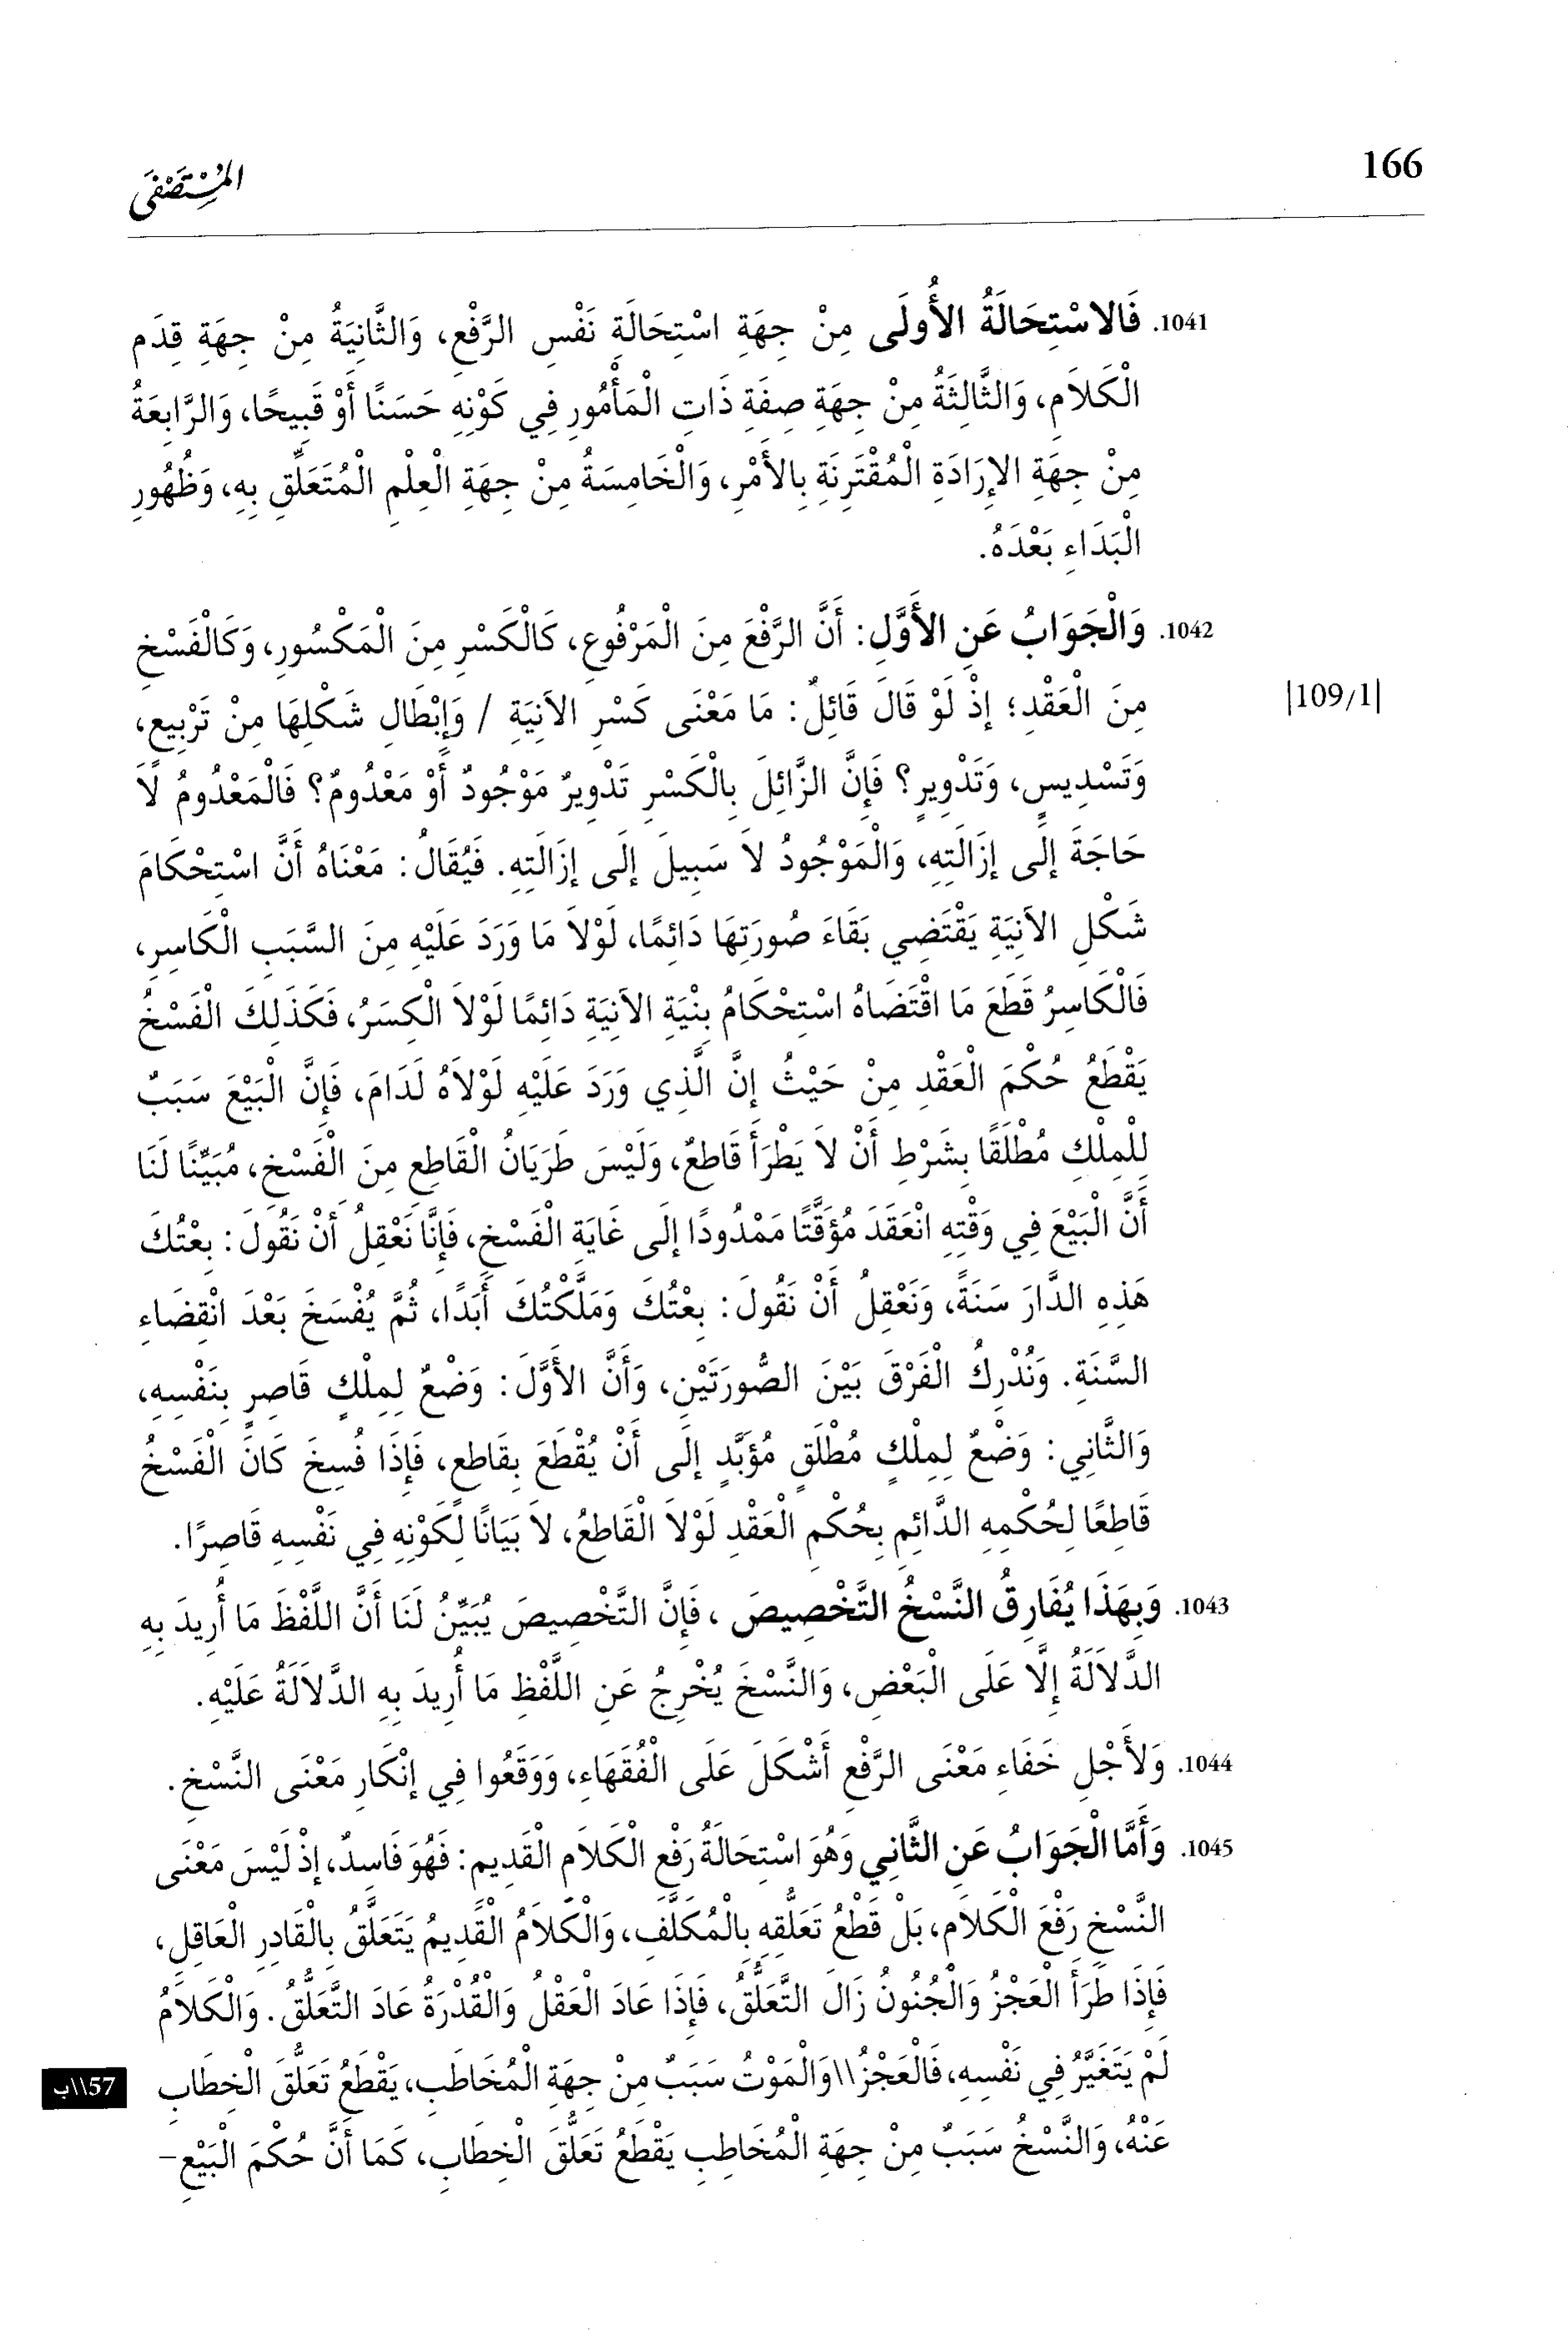 166
المُسْتَصْفَى
1041. فَالاسْتِحَالَةُ الأُولَى مِنْ جِهَةِ اسْتِحَالَةِ نَفْسِ الرَّفْعِ، وَالثَّانِيَةُ مِنْ جِهَةِ قِدَمِ
الْكَلاَمِ، وَالثَّالِثَةُ مِنْ جِهَةِ صِفَةِ ذَاتِ الْمَأْمُورِ فِي كَوْنِهِ حَسَنًا أَوْ قَبِيحًا، وَالرَّابِعَةُ
مِنْ جِهَةِ الإِرَادَةِ الْمُقْتَرِنَةِ بِالأَمْرِ، وَالْخَامِسَةُ مِنْ جِهَةِ الْعِلْمِ الْمُتَعَلِّقِ بِهِ، وَظُهُورِ
الْبَدَاءِ بَعْدَهُ.
1042. وَالْجَوَابُ عَنِ الأَوَّلِ: أَنَّ الرَّفْعَ مِنَ الْمَرْفُوعِ، كَالْكَسْرِ مِنَ الْمَكْسُورِ، وَكَالْفَسْخِ
مِنَ الْعَقْدِ؛ إِذْ لَوْ قَالَ قَائِلٌ: مَا مَعْنَى كَسْرِ الآنِيَةِ / وَإِبْطَالِ شَكْلِهَا مِنْ تَرْبِيعٍ، |109/1|
وَتَسْدِيسٍ، وَتَدْوِيرٍ؟ فَإِنَّ الزَّائِلَ بِالْكَسْرِ تَدْوِيرٌ مَوْجُودٌ أَوْ مَعْدُومٌ؟ فَالْمَعْدُومُ لَا
حَاجَةَ إِلَى إِزَالَتِهِ، وَالْمَوْجُودُ لاَ سَبِيلَ إِلَى إِزَالَتِهِ. فَيُقَالُ: مَعْنَاهُ أَنَّ اسْتِحْكَامَ
شَكْلِ الآنِيَةِ يَقْتَضِي بَقَاءَ صُورَتِهَا دَائِمًا، لَوْلاَ مَا وَرَدَ عَلَيْهِ مِنَ السَّبَبِ الْكَاسِرِ،
فَالْكَاسِرُ قَطَعَ مَا اقْتَضَاهُ اسْتِحْكَامُ بِنْيَةِ الآنِيَةِ دَائِمًا لَوْلاَ الْكَسَرُ، فَكَذَلِكَ الْفَسْخُ
يَقْطَعُ حُكْمَ الْعَقْدِ مِنْ حَيْثُ إِنَّ الَّذِي وَرَدَ عَلَيْهِ لَوْلاَهُ لَدَامَ، فَإِنَّ الْبَيْعَ سَبَبٌ
لِلْمِلْكِ مُطْلَقًا بِشَرْطِ أَنْ لاَ يَطْرَأَ قَاطِعٌ، وَلَيْسَ طَرَيَانُ الْقَاطِعِ مِنَ الْفَسْخِ، مُبَيِّنًا لَنَا
أَنَّ الْبَيْعَ فِي وَقْتِهِ انْعَقَدَ مُؤَقَّتًا مَمْدُودًا إِلَى غَايَةِ الْفَسْخِ، فَإِنَّا نَعْقِلُ أَنْ نَقُولَ: بِعْتُكَ
هَذِهِ الدَّارَ سَنَةً، وَنَعْقِلُ أَنْ نَقُولَ: بِعْتُكَ وَمَلَّكْتُكَ أَبَدًا، ثُمَّ يُفْسَخَ بَعْدَ انْقِضَاءِ
السَّنَةِ. وَنُدْرِكُ الْفَرْقَ بَيْنَ الصُّورَتَيْنِ، وَأَنَّ الأَوَّلَ: وَضْعٌ لِمِلْكٍ قَاصِرٍ بِنَفْسِهِ،
وَالثَّانِي: وَضْعٌ لِمِلْكٍ مُطْلَقٍ مُؤَبَّدٍ إِلَى أَنْ يُقْطَعَ بِقَاطِعٍ، فَإِذَا فُسِخَ كَانَ الْفَسْخُ
قَاطِعًا لِحُكْمِهِ الدَّائِمِ بِحُكْمِ الْعَقْدِ لَوْلاَ الْقَاطِعُ، لاَ بَيَانًا لِكَوْنِهِ فِي نَفْسِهِ قَاصِرًا.
1043. وَبِهَذَا يُفَارِقُ النَّسْخُ التَّخْصِيصَ، فَإِنَّ التَّخْصِيصَ يُبَيِّنُ لَنَا أَنَّ اللَّفْظَ مَا أُرِيدَ بِهِ
الدَّلاَلَةُ إِلَّا عَلَى الْبَعْضِ، وَالنَّسْخَ يُخْرِجُ عَنِ اللَّفْظِ مَا أُرِيدَ بِهِ الدَّلاَلَةُ عَلَيْهِ.
1044. وَلأَجْلِ خَفَاءِ مَعْنَى الرَّفْعِ أَشْكَلَ عَلَى الْفُقَهَاءِ، وَوَقَعُوا فِي إِنْكَارِ مَعْنَى النَّسْخِ.
1045. وَأَمَّا الْجَوَابُ عَنِ الثَّانِي وَهُوَ اسْتِحَالَةُ رَفْعِ الْكَلاَمِ الْقَدِيمِ: فَهُوَ فَاسِدٌ، إِذْ لَيْسَ مَعْنَى
النَّسْخِ رَفْعَ الْكَلاَمِ، بَلْ قَطْعُ تَعَلُّقِهِ بِالْمُكَلَّفِ، وَالْكَلاَمُ الْقَدِيمُ يَتَعَلَّقُ بِالْقَادِرِ الْعَاقِلِ،
فَإِذَا طَرَأَ الْعَجْزُ وَالْجُنُونُ زَالَ التَّعَلُّقُ، فَإِذَا عَادَ الْعَقْلُ وَالْقُدْرَةُ عَادَ التَّعَلُّقُ. وَالْكَلاَمُ
لَمْ يَتَغَيَّرْ فِي نَفْسِهِ، فَالْعَجْزُ\\وَالْمَوْتُ سَبَبٌ مِنْ جِهَةِ الْمُخَاطَبِ، يَقْطَعُ تَعَلُّقَ الْخِطَابِ 57\\ب
عَنْهُ، وَالنَّسْخُ سَبَبٌ مِنْ جِهَةِ الْمُخَاطِبِ يَقْطَعُ تَعَلُّقَ الْخِطَابِ، كَمَا أَنَّ حُكْمَ الْبَيْعِ–